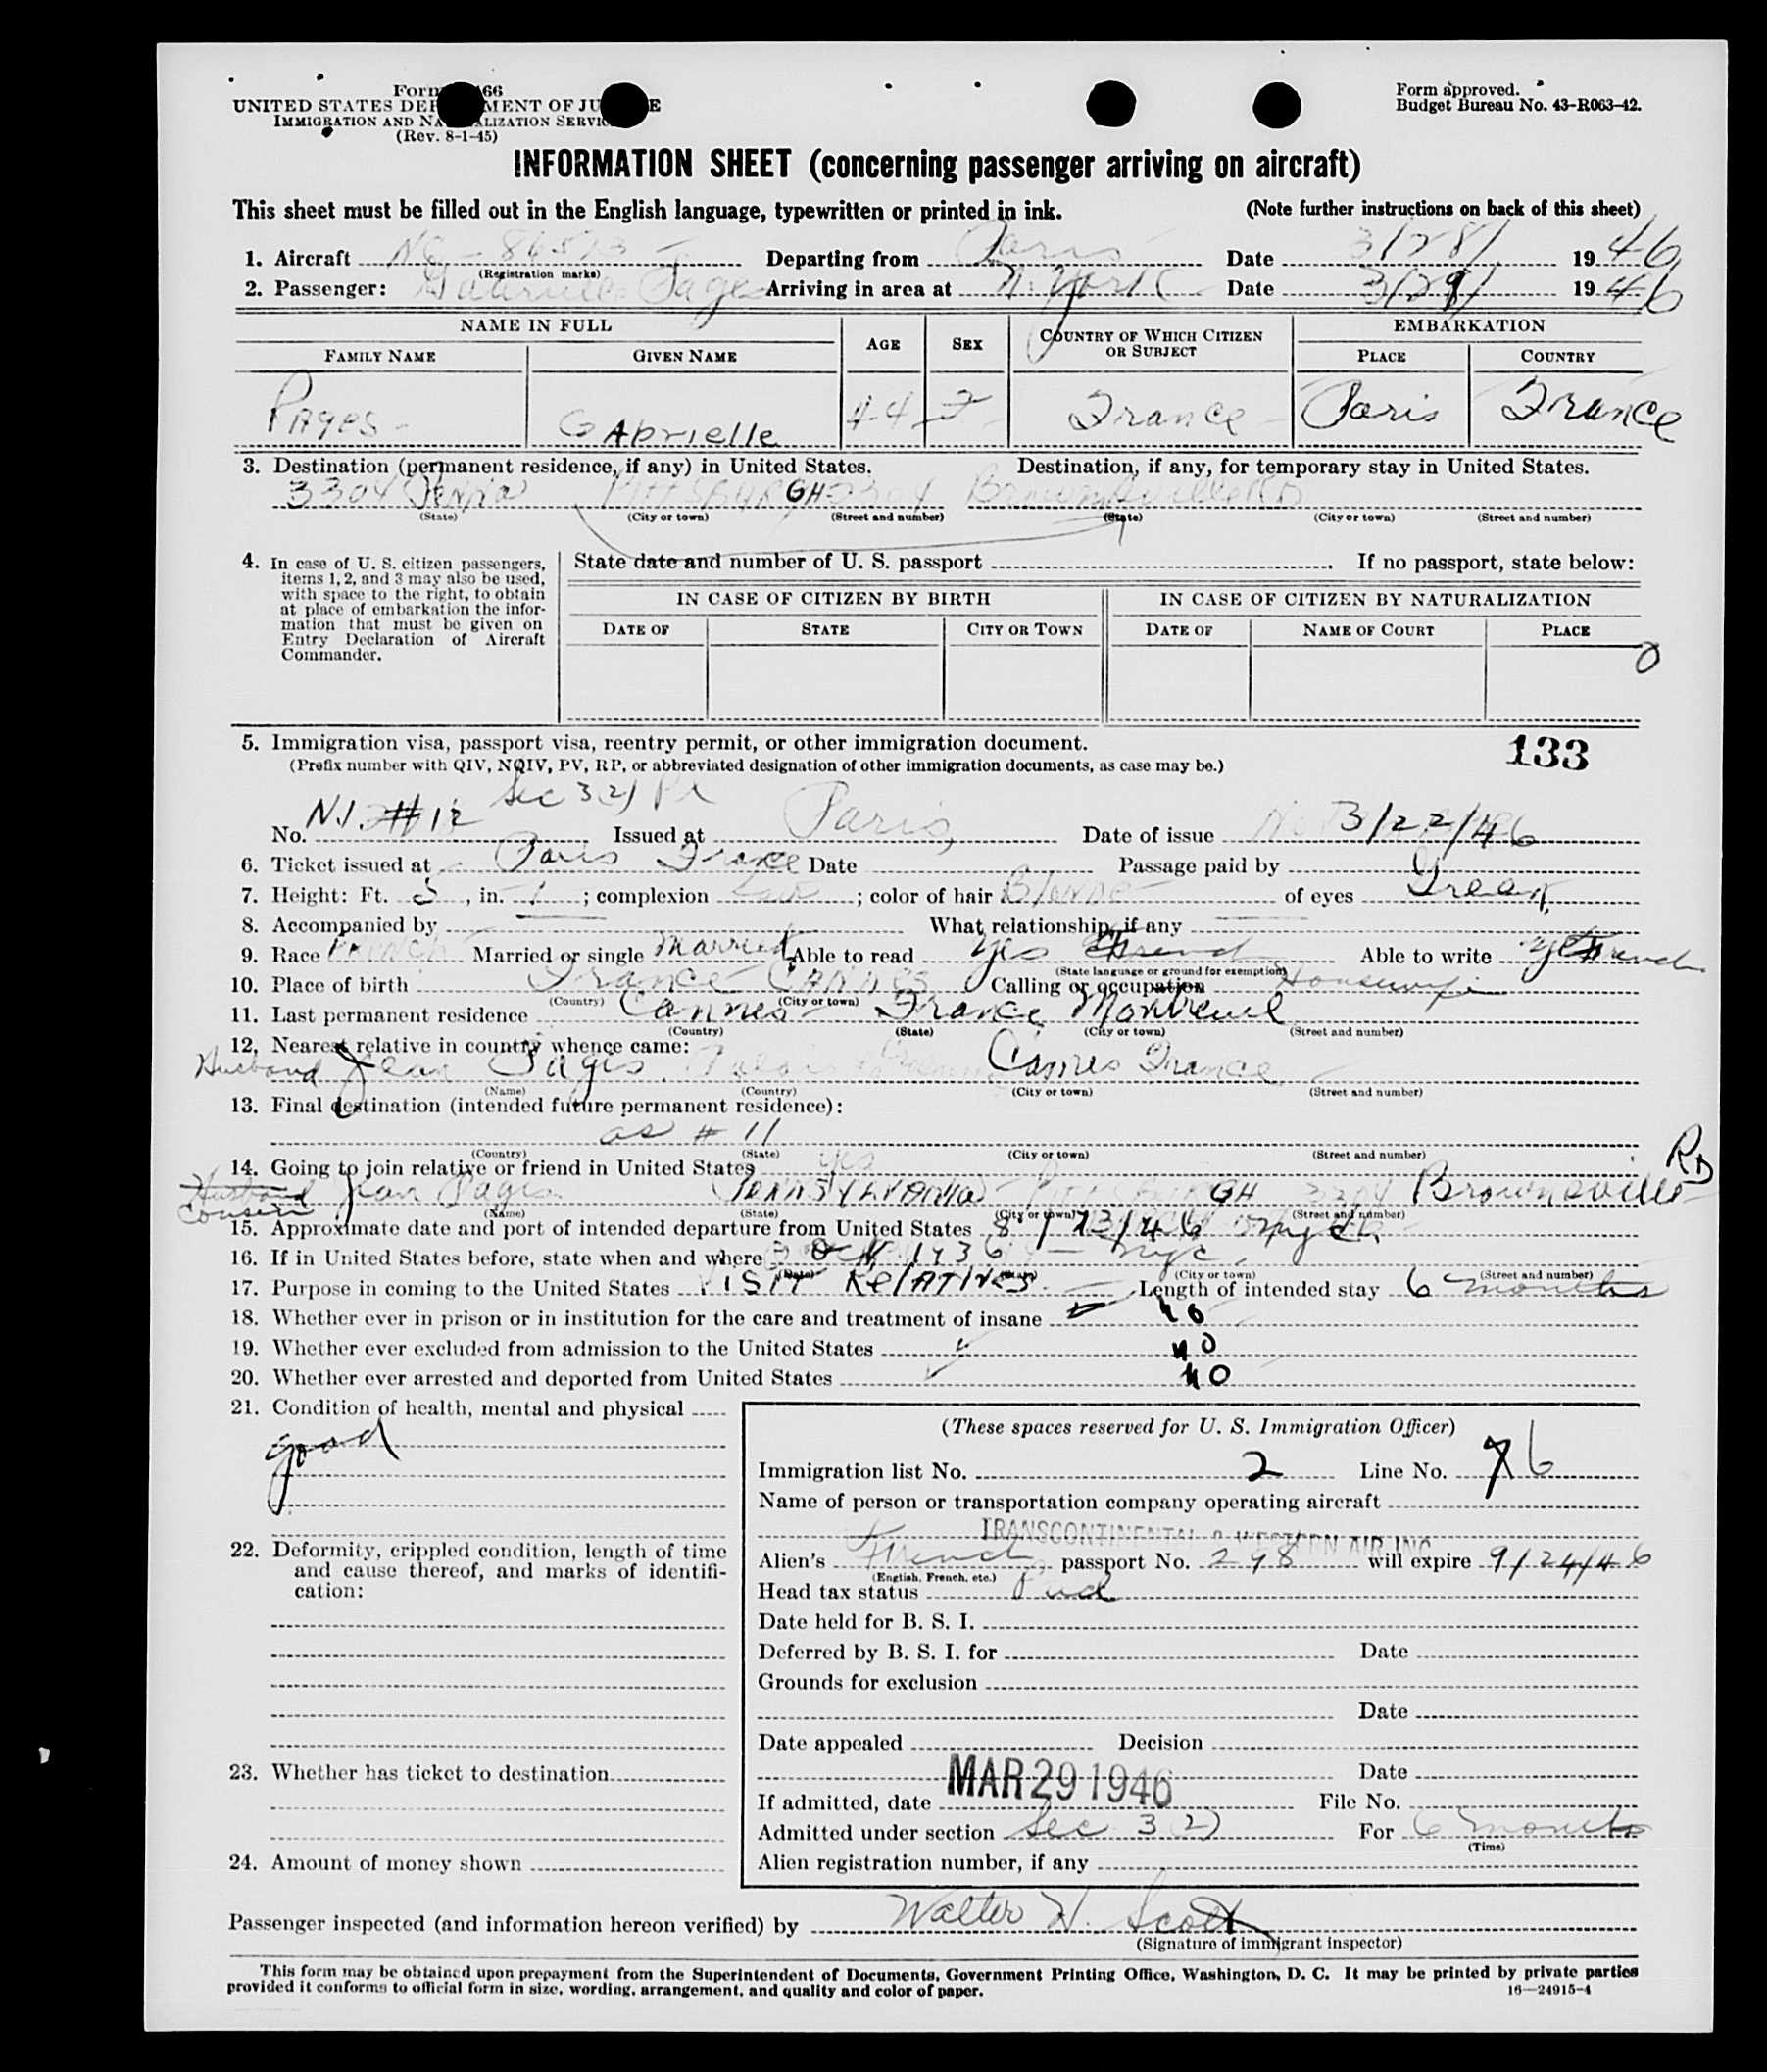 Form 66
UNITED STATES DEP MENT OF JU E
IMMIGRATION AND NA LIZATION SERVIC
(Rev. 8-1-45)
Form approved.
Budget Bureau No. 43-R063-42.
INFORMATION SHEET (concerning passenger arriving on aircraft)
This sheet must be filled out in the English language, typewritten or printed in ink. (Note further instructions on back of this sheet)
1. Aircraft NC - 86513 Departing from Paris Date 3/28/ 1946
(Registration marks)
2. Passenger: Gabrielle Pages Arriving in area at N. York Date 3/29/ 1946
NAME IN FULL
FAMILY NAME GIVEN NAME AGE SEX COUNTRY OF WHICH CITIZEN OR SUBJECT EMBARKATION
PLACE COUNTRY
PAges - GAbrielle 44 F France Paris France
3. Destination (permanent residence, if any) in United States. Destination, if any, for temporary stay in United States.
3304 Penna PittsBURGH 3304 Brownsville RD
(State) (City or town) (Street and number) (State) (City or town) (Street and number)
4. In case of U. S. citizen passengers, items 1, 2, and 3 may also be used, with space to the right, to obtain at place of embarkation the information that must be given on Entry Declaration of Aircraft Commander.
State date and number of U. S. passport If no passport, state below:
IN CASE OF CITIZEN BY BIRTH IN CASE OF CITIZEN BY NATURALIZATION
DATE OF STATE CITY OR TOWN DATE OF NAME OF COURT PLACE
0
5. Immigration visa, passport visa, reentry permit, or other immigration document.
(Prefix number with QIV, NQIV, PV, RP, or abbreviated designation of other immigration documents, as case may be.)
133
Sec 3(2)
No. N.I. # 12 Issued at Paris, Date of issue 3/22/46
6. Ticket issued at Paris France Date Passage paid by
7. Height: Ft. 5, in. 1; complexion fair; color of hair Blonde of eyes Green
8. Accompanied by What relationship, if any
9. Race FRENCH Married or single Married Able to read Yes French Able to write yes French
(State language or ground for exemption)
10. Place of birth France CANNES Calling or occupation Housewife
(Country) (City or town)
11. Last permanent residence Cannes - France Montreuil
(Country) (State) (City or town) (Street and number)
12. Nearest relative in country whence came:
Husband Jean Pages Cannes France
(Name) (Country) (City or town) (Street and number)
13. Final destination (intended future permanent residence):
as # 11
(Country) (State) (City or town) (Street and number)
14. Going to join relative or friend in United States yes
RD
Husband Jean Pages PENNSYLVANIA PITTSBURGH 3304 Brownsville
Cousin (Name) (State) (City or town) (Street and number)
15. Approximate date and port of intended departure from United States 8/23/46
16. If in United States before, state when and where Oct. 1936 - nyc.
(Date) (State) (City or town) (Street and number)
17. Purpose in coming to the United States VISIT RELATIVES Length of intended stay 6 months
18. Whether ever in prison or in institution for the care and treatment of insane no
19. Whether ever excluded from admission to the United States no
20. Whether ever arrested and deported from United States no
21. Condition of health, mental and physical
good
22. Deformity, crippled condition, length of time and cause thereof, and marks of identification:
23. Whether has ticket to destination
24. Amount of money shown
(These spaces reserved for U. S. Immigration Officer)
Immigration list No. 2 Line No. 6
Name of person or transportation company operating aircraft
TRANSCONTINENTAL & WESTERN AIR INC
Alien's French passport No. 298 will expire 9/24/46
(English, French, etc.)
Head tax status Pud
Date held for B. S. I.
Deferred by B. S. I. for Date
Grounds for exclusion
Date
Date appealed Decision
Date
If admitted, date MAR 29 1946 File No.
Admitted under section Sec 3(2) For 6 months
(Time)
Alien registration number, if any
Passenger inspected (and information hereon verified) by Walter W. Scott
(Signature of immigrant inspector)
This form may be obtained upon prepayment from the Superintendent of Documents, Government Printing Office, Washington, D. C. It may be printed by private parties
provided it conforms to official form in size, wording, arrangement, and quality and color of paper.
16—24915-4